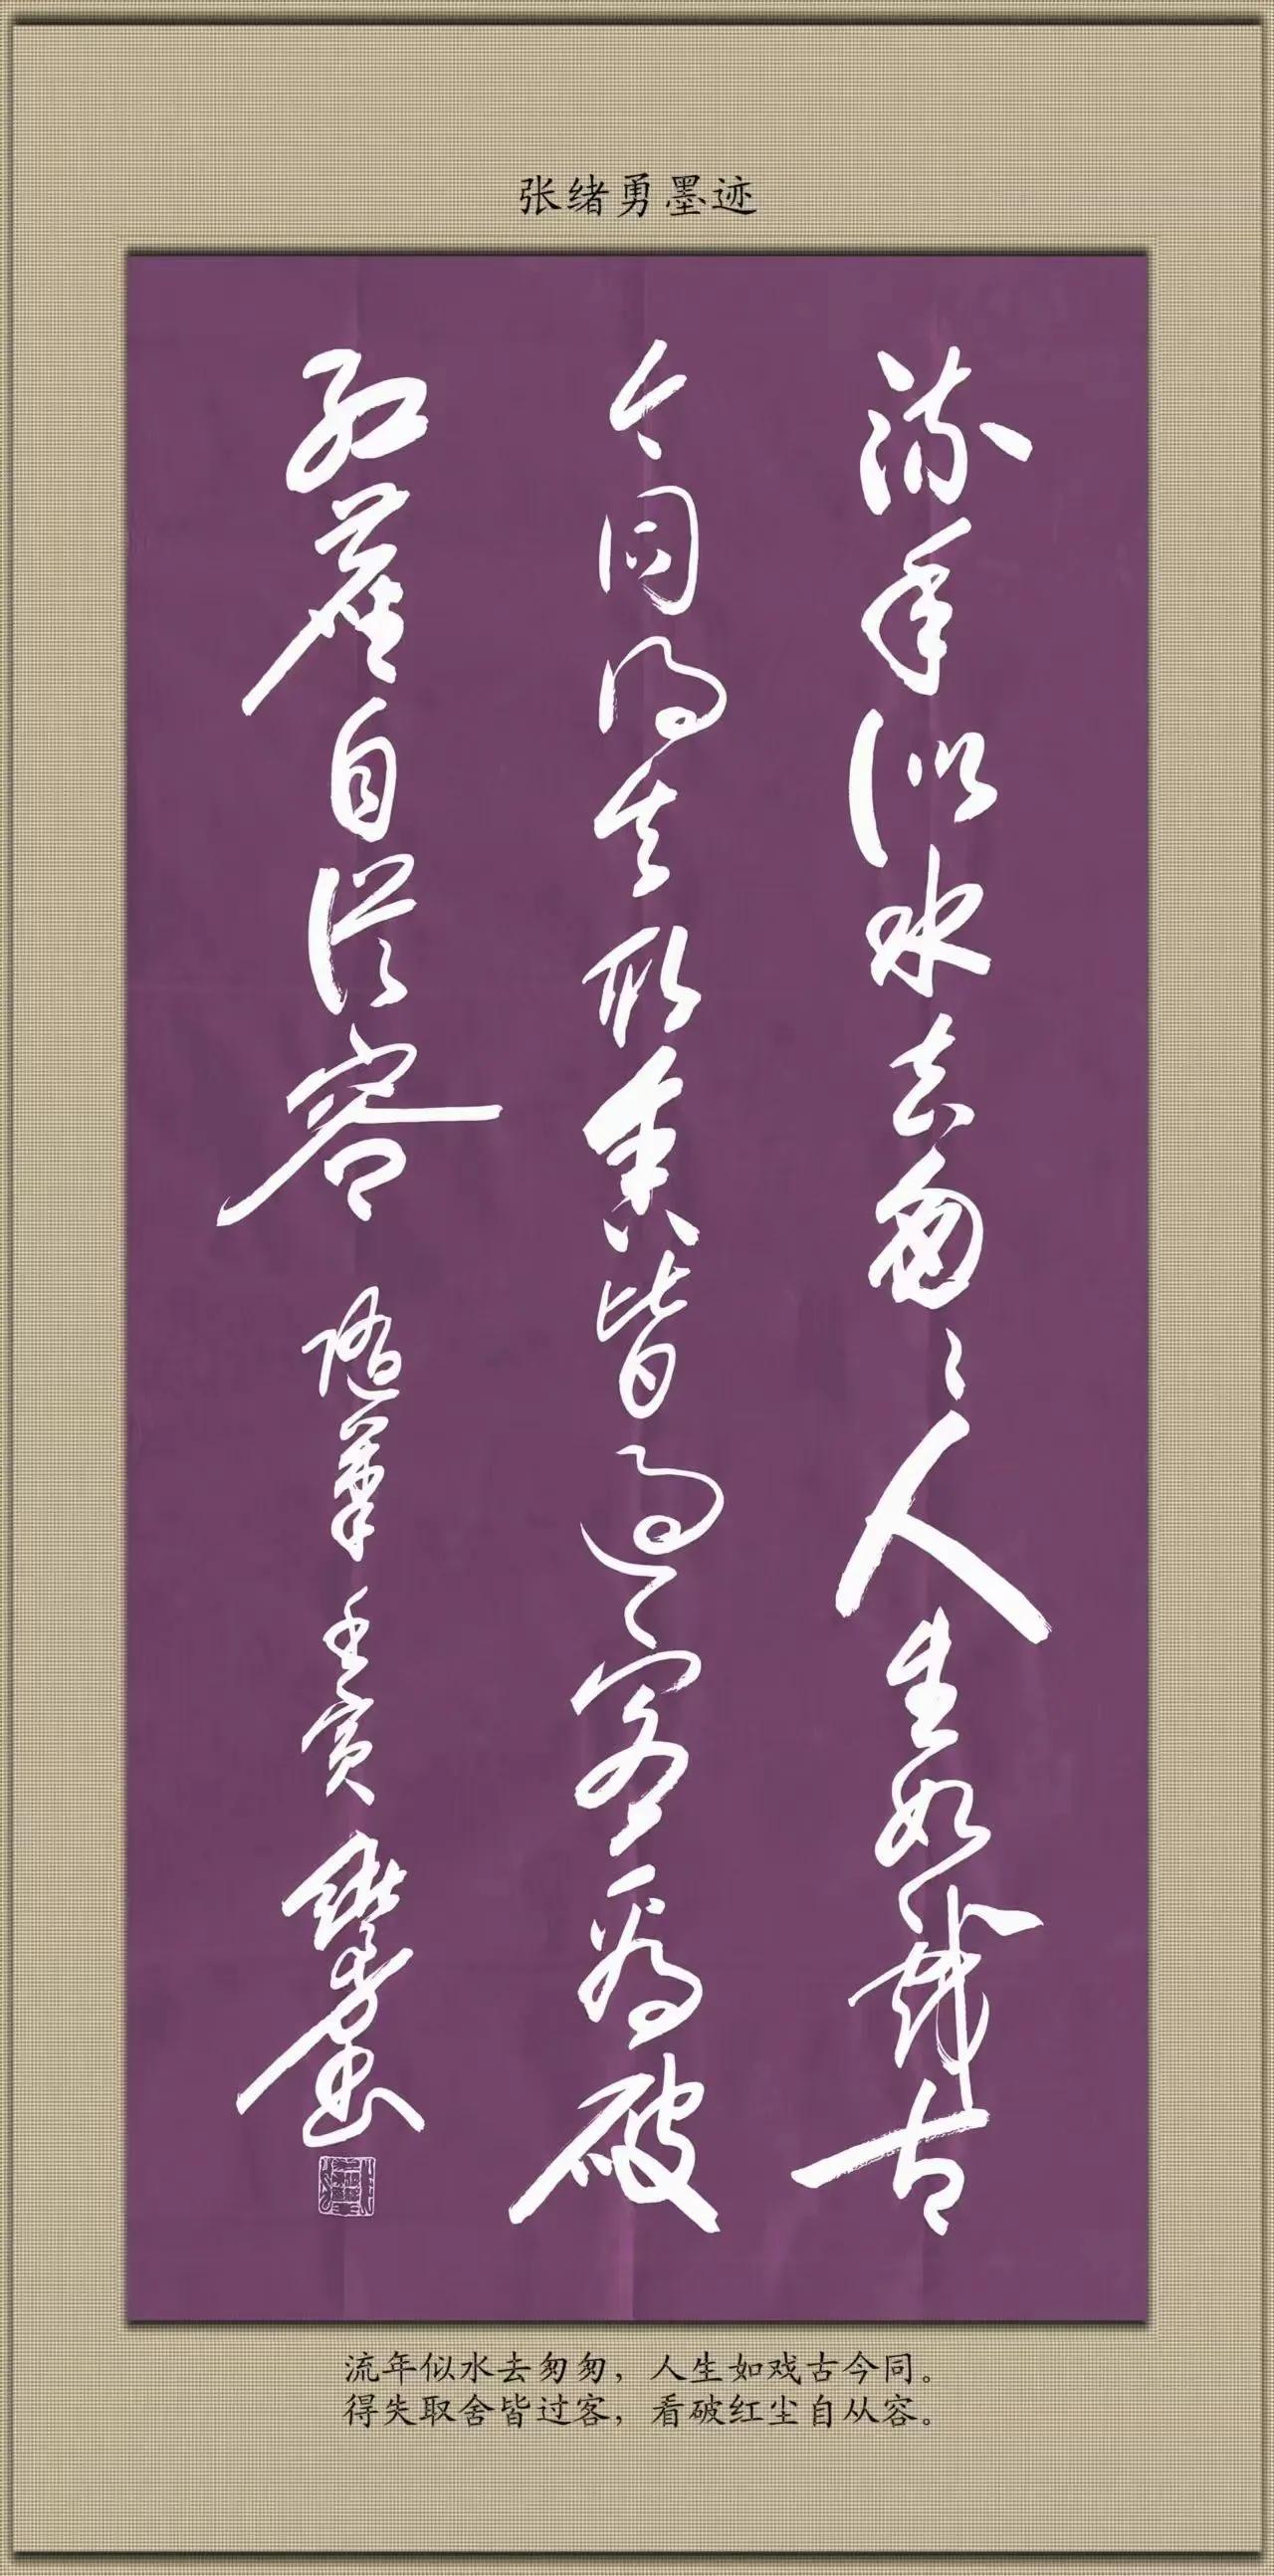 张绪勇墨迹
流年似水去匆匆人生如戏古
今同得失取舍皆过客看破
红尘自从容 随笔 壬寅 绪勇书
流年似水去匆匆，人生如戏古今同。
得失取舍皆过客，看破红尘自从容。